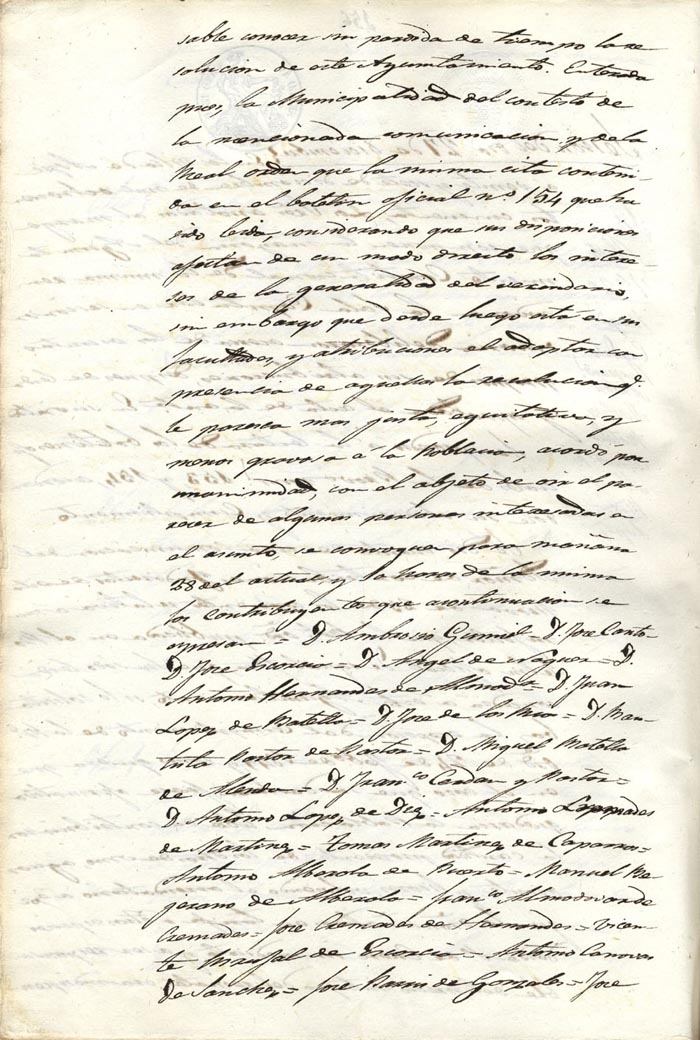 sable conocer sin perdida de tiempo la re
solucion de este Ayuntamiento. Enterada
pues, la Municipalidad del contesto de
la mencionada comunicacion, y de la
Real orden que la misma cita conteni-
da en el boletin oficial nº 154 que ha
sido leida, considerando que sus disposiciones
afectan de un modo directo los intere-
ses de la generalidad del vecindario,
sin embargo que desde luego está en sus
facultades, y atribuciones el adoptar con
presencia de aquellos la resolucion q.
le paresca mas justa, equitativa, y
menos gravosa á la Poblacion, acordó por
unanimidad, con el objeto de oir el pa-
recer de algunas personas interesadas en
el asunto, se convoquen para mañana
28 del actual y horas de la misma
los contribuyentes que acontinuacion se
espresan = D. Ambrosio Gumiel D. Jose Canto-
D. Jose Escorcio = D. Angel de = D.
Antonio Hernandes de = D. Juan
Lopez de Botella = D. Jose de los Rios = D. Pan-
Pastor de Pastor = D. Miguel Botella
de = D. Franco. y Pastor =
D. Antonio Lopez de Diez = Antonio
de Martinez = Tomas Martinez de Caparros =
Antonio Alberola de Puerto = Manuel Be
jerano de Alberola = Franco. Almodovar de
Cremades = Jose Cremades de Hernandes = Vicen-
te de Escorcio = Antonio Canovas
de Sanchez = Jose de Gonzales = Jose